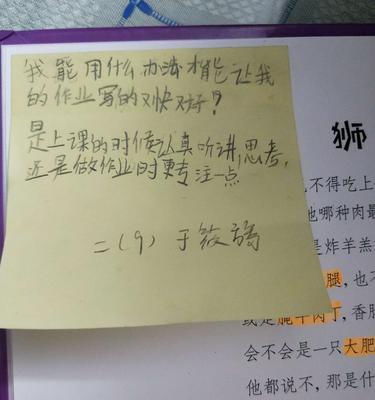 我能用什么办法才能让我
的作业写的又快又好？
是上课的时候认真听讲,思考,
还是做作业时更专注一点
二(9) 于筱
狮
不得吃上
他哪种肉最
是炸羊羔
腿，也不
或是腌牛肉丁，香肠
会不会是一只大肥
他都说不，那是什